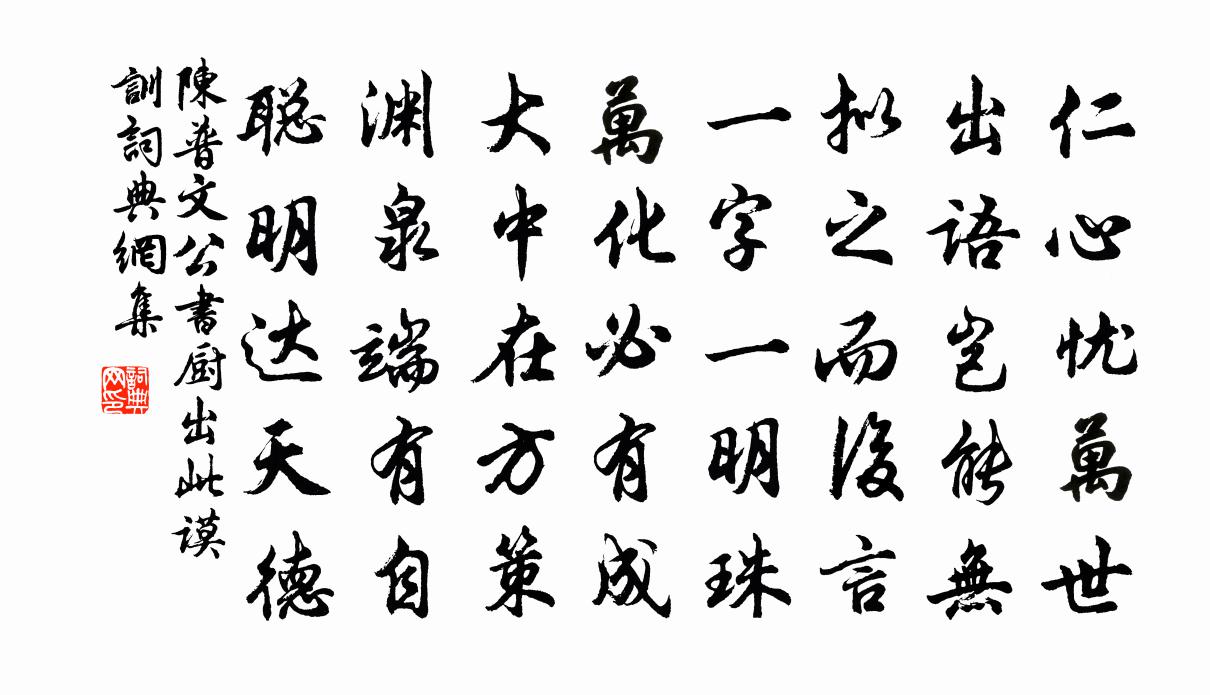 仁心忧萬世
出语岂能無
拟之而後言
一字一明珠
萬化必有成
大中在方策
渊泉端有自
聪明达天德
陳普文公書厨出此谟
訓詞典網集
詞典网印